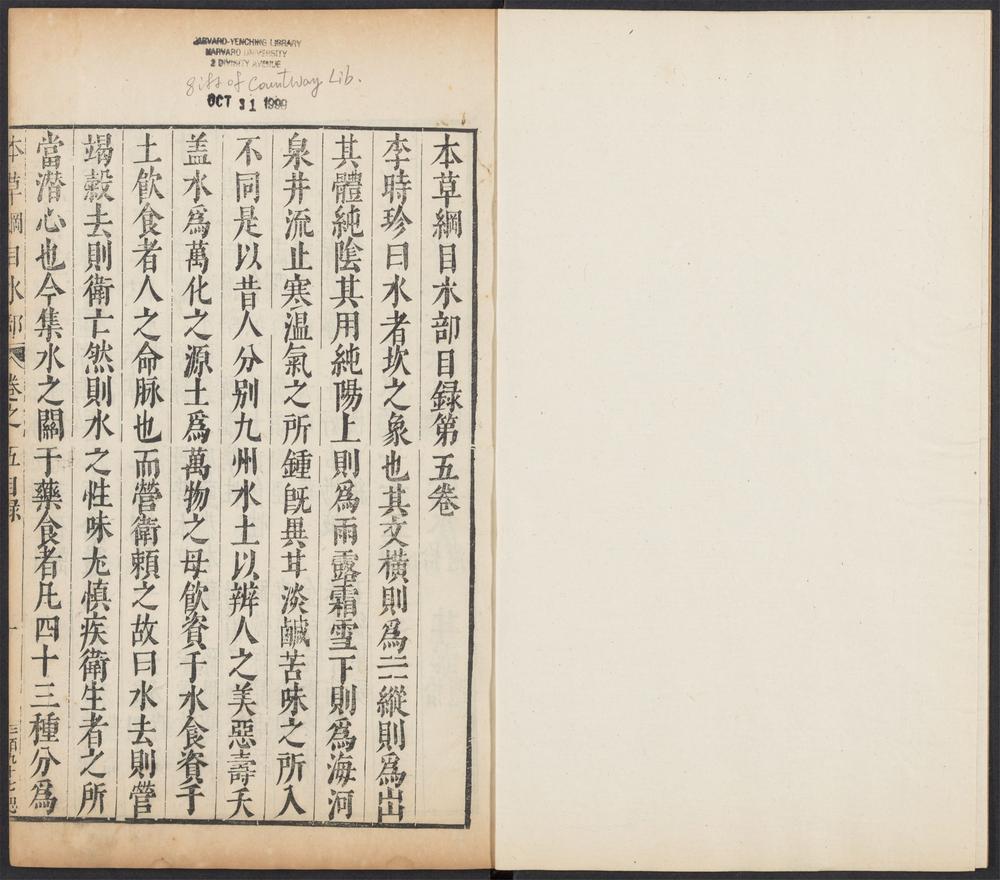 HARVARD-YENCHING LIBRARY
HARVARD UNIVERSITY
2 DIVINITY AVENUE
gift of Countway Lib.
OCT 31 1999
本草綱目水部目録第五卷
李時珍曰水者坎之象也其文橫則為☵縱則為巛
其體純陰其用純陽上則為雨露霜雪下則為海河
泉井流止寒温氣之所鍾旣異甘淡鹹苦味之所入
不同是以昔人分别九州水土以辨人之美惡壽夭
盖水為萬化之源土為萬物之母飲資于水食資于
土飲食者人之命脉也而營衛頼之故曰水去則營
竭穀去則衛亡然則水之性味尤慎疾衛生者之所
當潛心也今集水之關于藥食者凡四十三種分為
本草綱目水部 卷之五目録 一